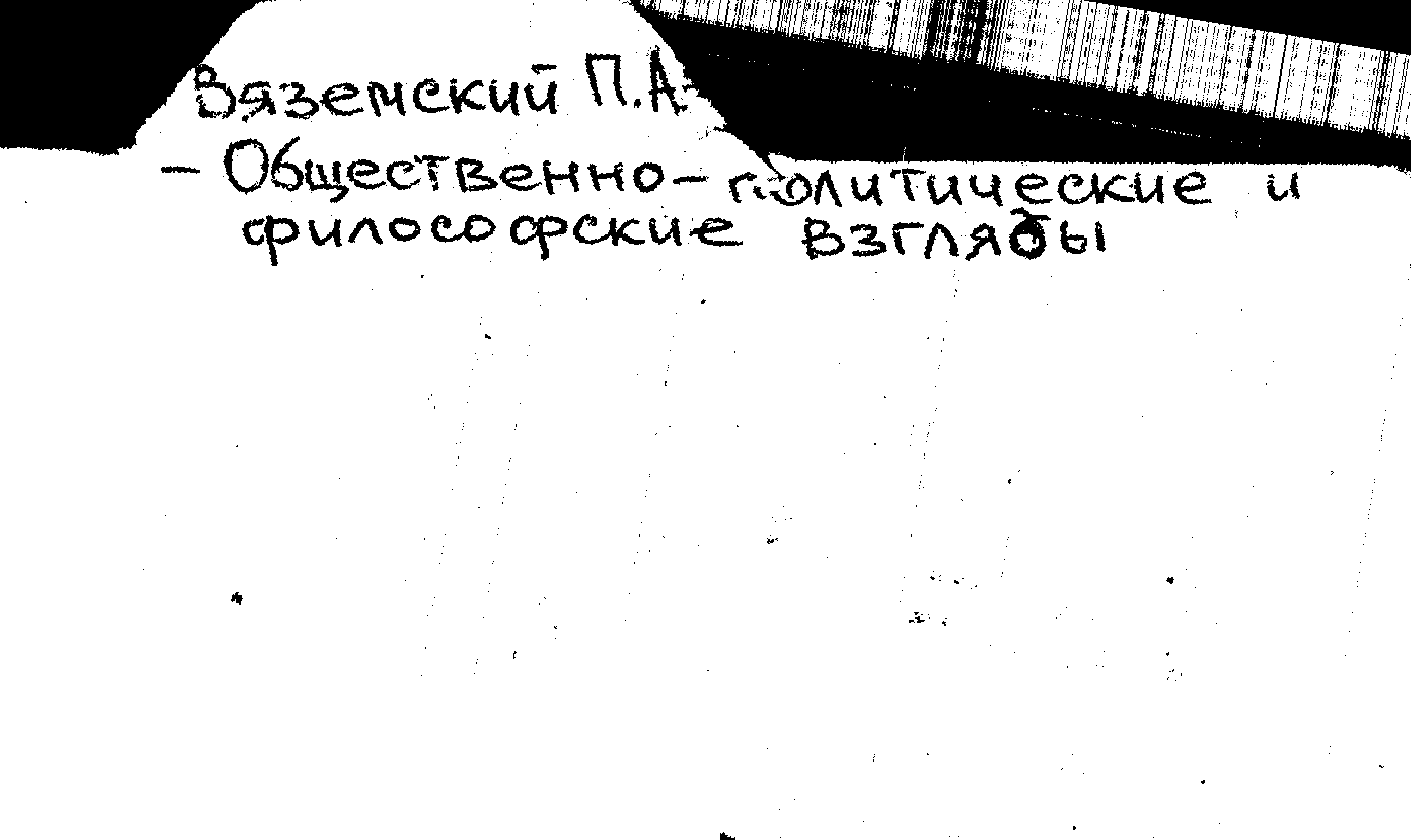 Вяземский П.А.
- Общественно-политические и
философские взгляды